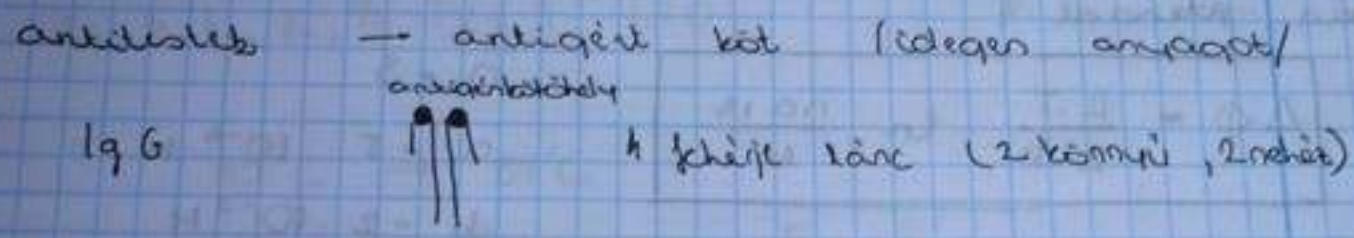 antitestek → antigént köt (idegen anyagot/
antigénkötőhely
Ig G 4 fehérje lánc (2 könnyű, 2 nehéz)